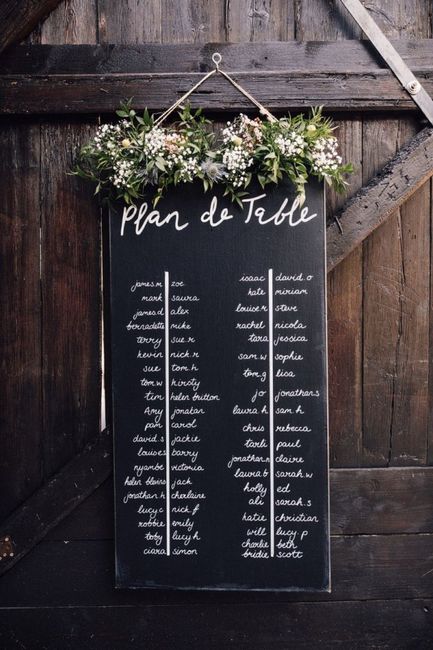 Plan de Table
james.m zoe
mark saura
james.d alex
bernadette mike
terry sue.r
kevin nick.r
sue tom.h
tom.w kirsty
tim helen button
Amy jonakan
pam carol
david.s jackie
louise.s barry
nyambe victoria
helen blains jack
jonathan.h cherlaine
lucy c nick.f
robbie emily
toby lucy h
ciara simon
isaac david.o
kate miriam
louise.r steve
rachel nicola
tara jessica
sam.w sophie
tom.g lisa
jo jonathan.s
laura h sam.h
chris rebecca
tarli paul
jonathan.n claire
laura b sarah.w
holly ed
ali sarah.s
katie christian
will lucy p
charlie beth
bridie scott